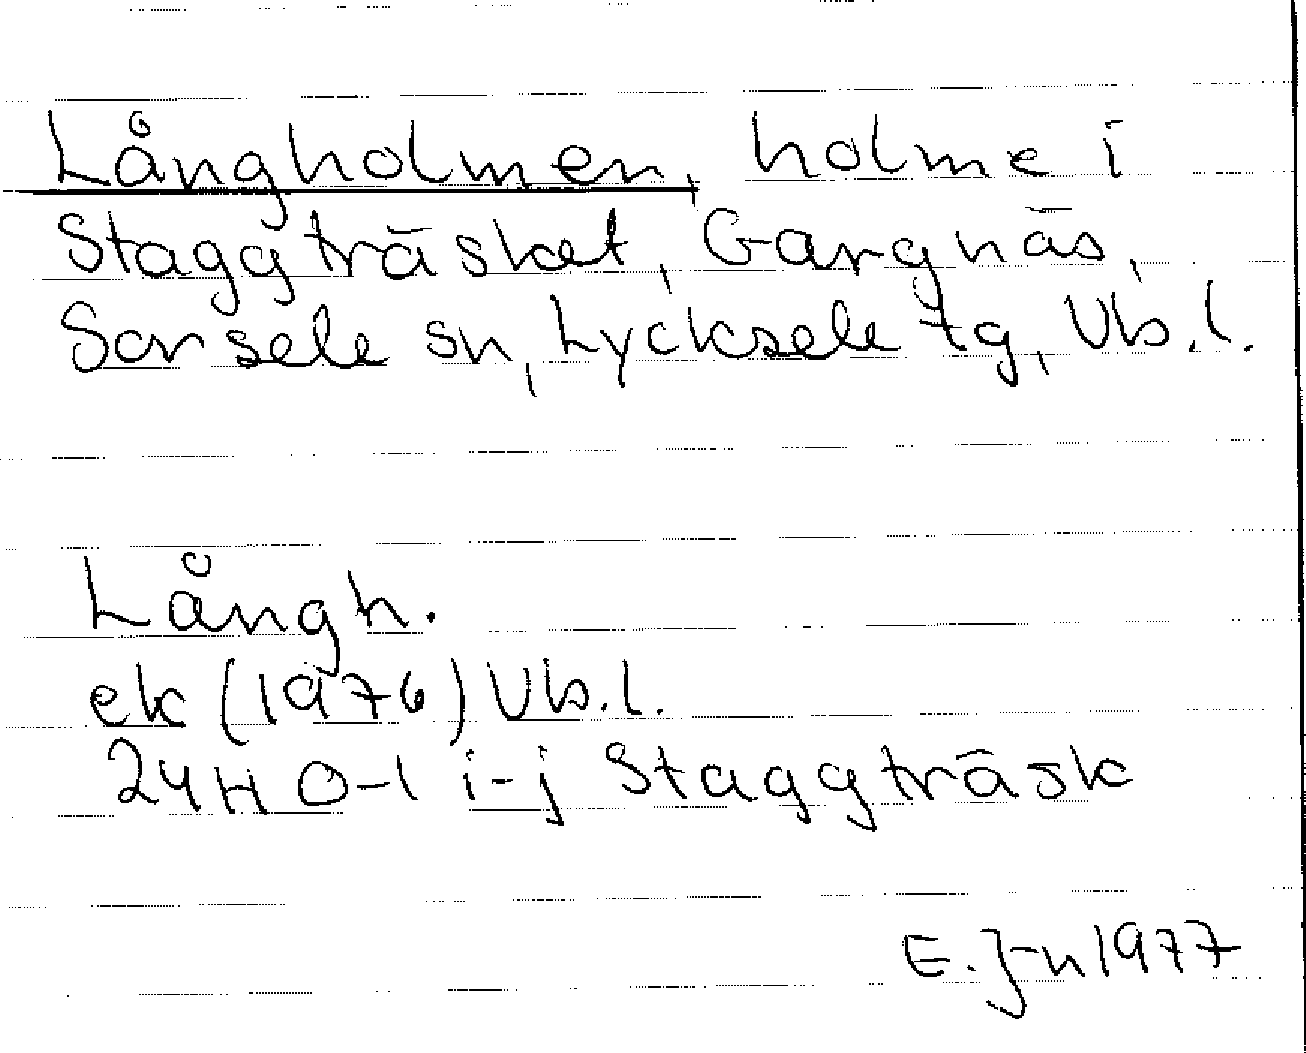 Långholmen, holme i
Staggträsket, Gargnäs,
Sorsele sn, Lycksele tg, Vb.l.
Långh.
ek (1976) Vb.l.
24H 0-1 i-j Staggträsk
E. J-n 1977